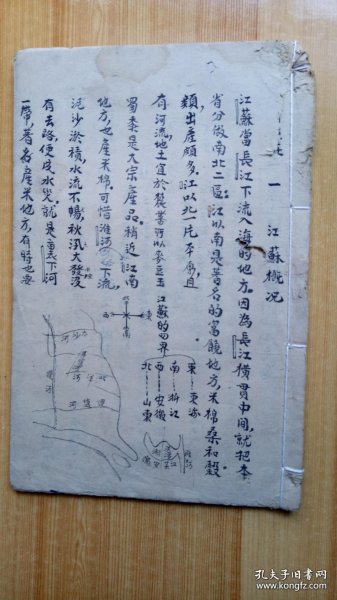 一 江蘇概況
江蘇當長江下流入海的地方。因為長江橫貫中間，就把本
省分做南北二區。江以南是著名的富饒地方，米棉桑和穀
類，出產頗多。江以北一片平原，且
有河流，地土宜於農業，所以麥豆玉
蜀黍是大宗產品。稍近江南
地方，也產米棉。可惜淮河下流，
泥沙淤積，水流不暢，秋汛大發，沒
有去路，便成水災。就是裏下河
一帶，著名產米地方，有時也要
江蘇的四界
東—東海
南—浙江
西—安徽
北—山東
東
西
孔夫子旧书网
www.kongfz.com